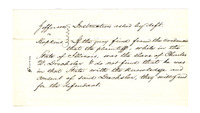 Jefferson Instruction asked by Deft.
Hopkins If the jury finds from the evidence
that the plaintiff, while in the
State of Illinois, was the slave of Charles
W. Drechsler, & do not find that he was
in that State with the knowledge and
consent of said Drechsler, they must find
for the defendant.